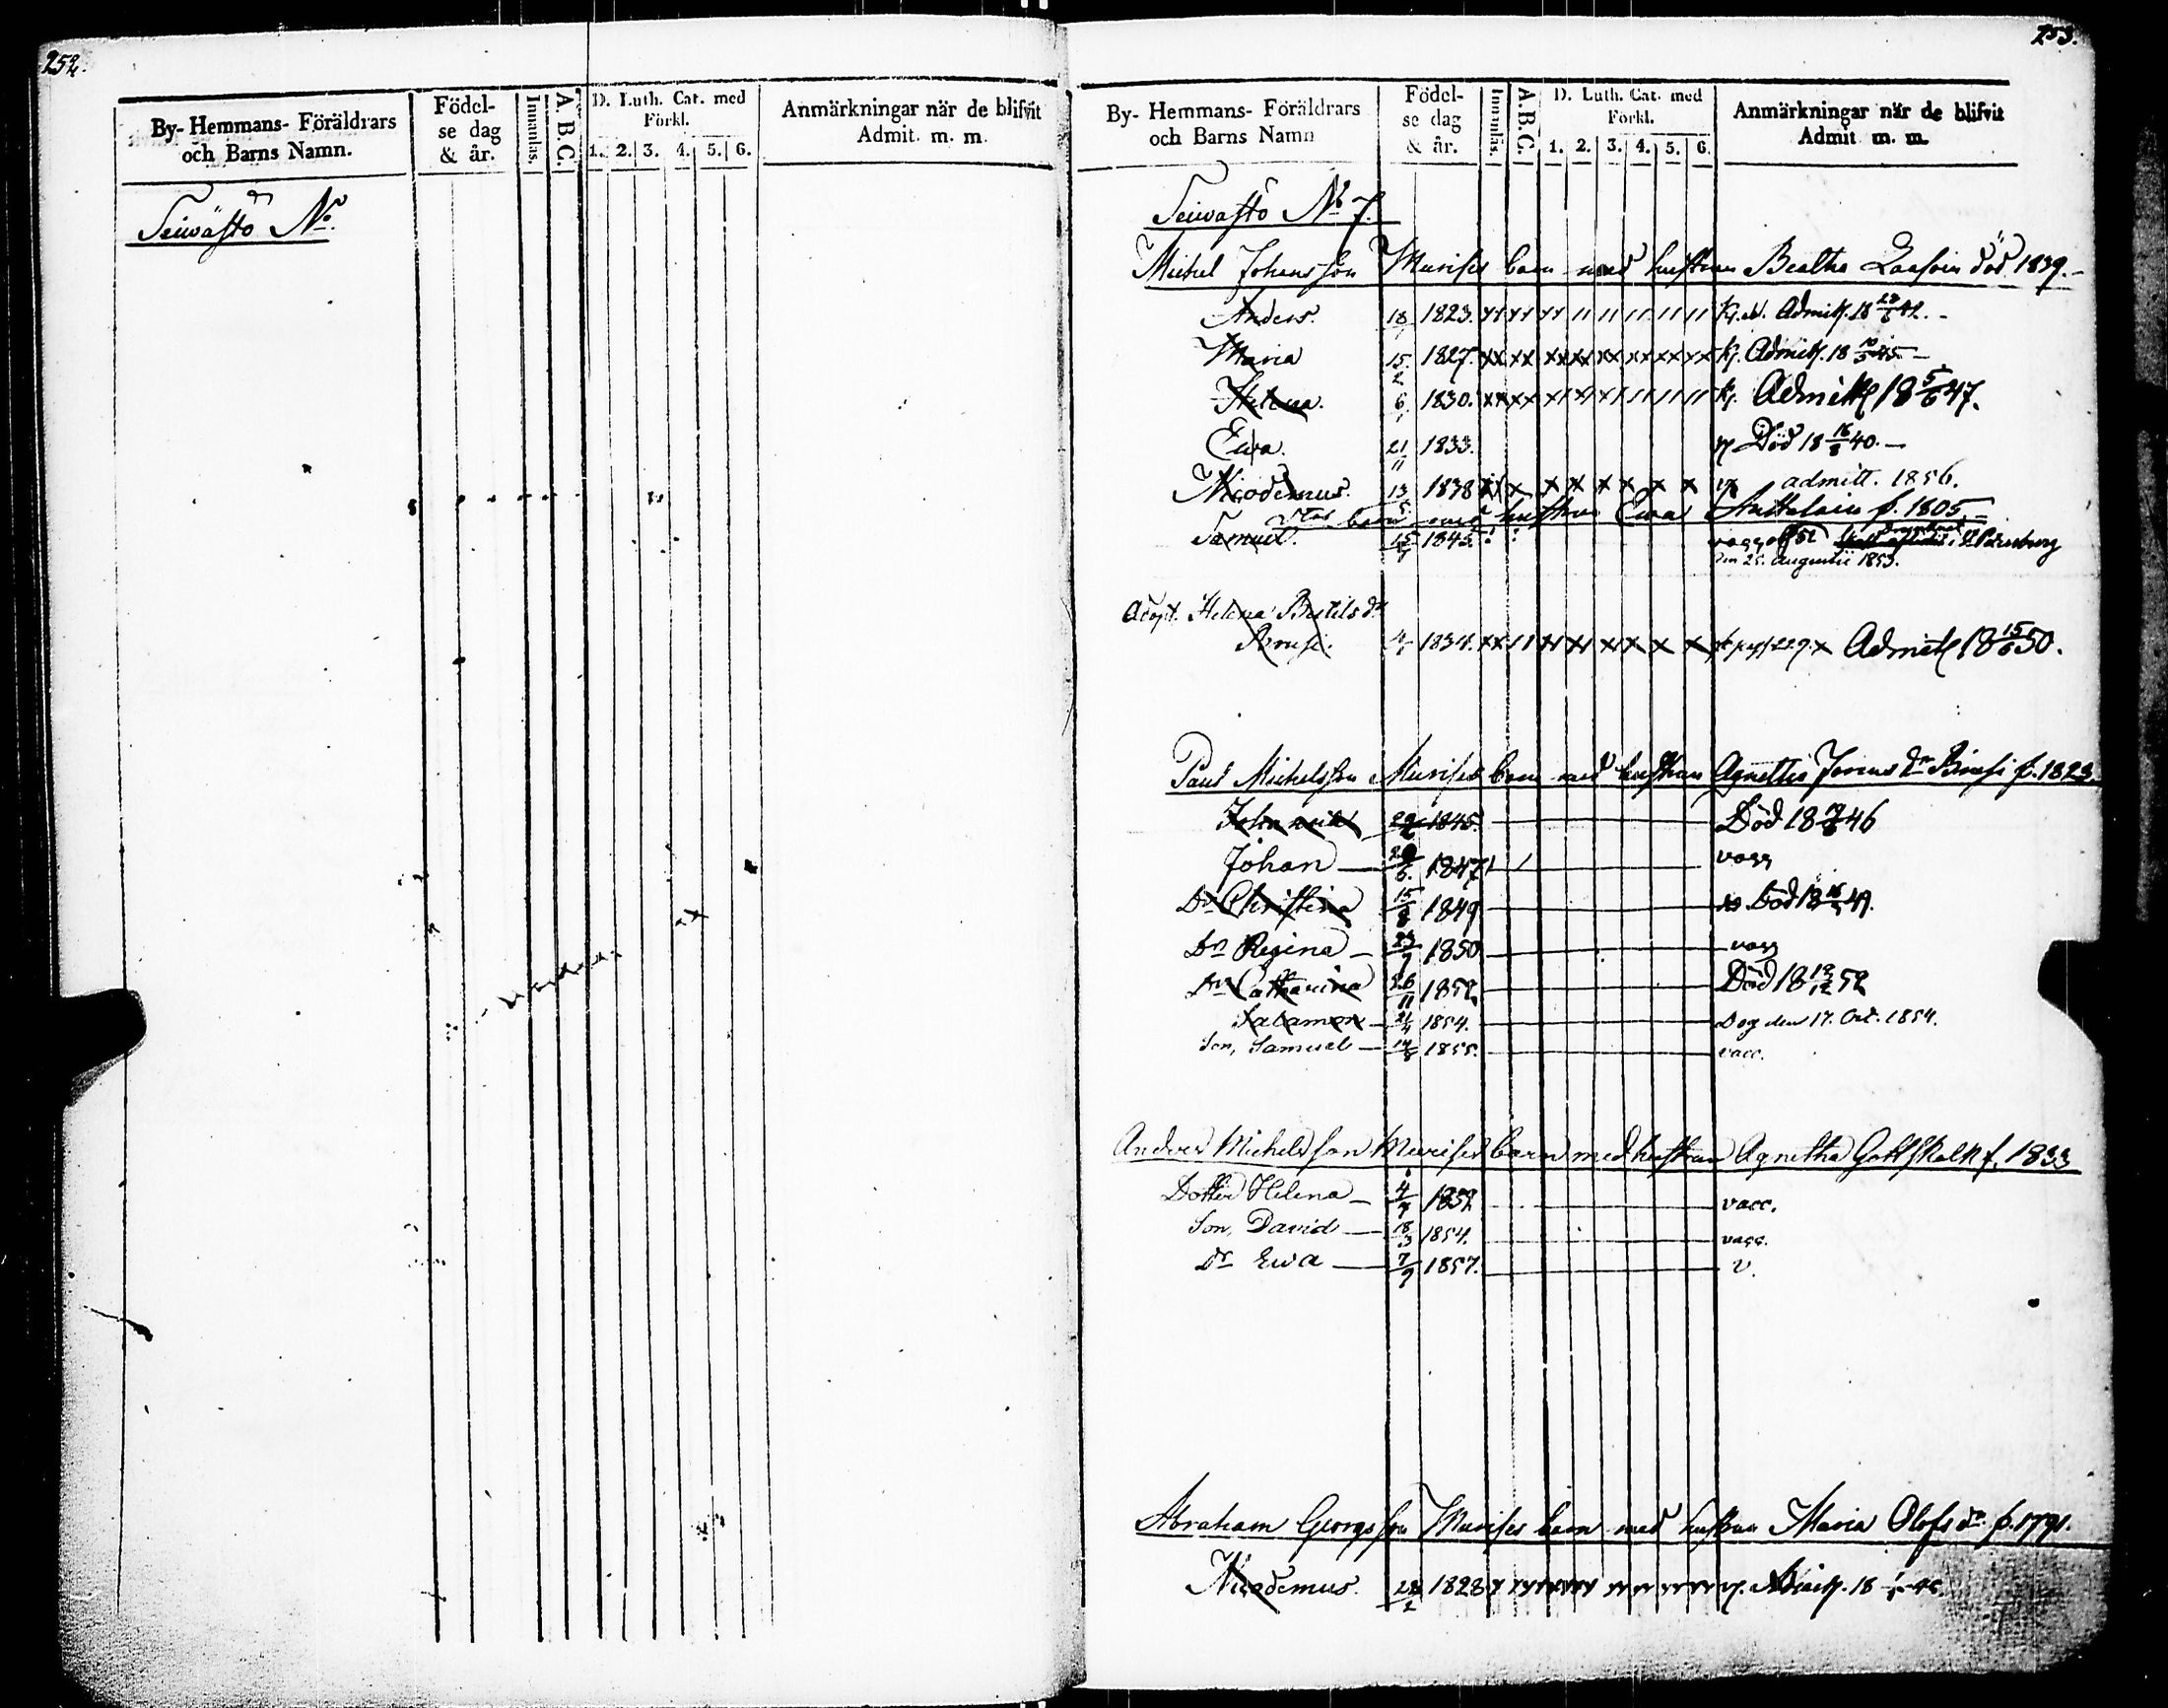 252.
By- Hemmans- Föräldrars
och Barns Namn.
Födel-
se dag
& år.
Innanläs.
A. B. C.
D. Luth. Cat. med
Förkl.
1. 2. 3. 4. 5. 6.
Anmärkningar när de blifvit
Admit. m. m.
Seiwästö No.
253.
By- Hemmans- Föräldrars
och Barns Namn
Födel-
se dag
& år.
Innanläs.
A. B. C.
D. Luth. Cat. med
Förkl.
1. 2. 3. 4. 5. 6.
Anmärkningar när de blifvit
Admit. m. m.
Seiwästö No 7.
Michel Johansson Murises barn med hustrun Beatha död 1839.
Anders. 18 1823. Admitt. 18 42.
Maria 15/2 1827. Admitt. 18 45
Helena. 6/1 1830. Admitt 18 5/6 47.
Ewa. 21/11 1833. Död 18 16/8 40.
Nicodemus. 13/5 1838 admitt. 1856.
barn med hustrun Ewa f. 1805
Samuel. 15 1845. St Petersburg
den 25. Augustii 1853.
Adopt. Helena Bertils dr
4 1834. Admitt 18 15/6 50.
Paul Michelsson Murises barn med hustrun Agneta dr f. 1823.
1845. Död 18 46
Johan 6. 1847 vacc
Dr Christina 15/8 1849 Död 18 49.
Dr Regina 23/7 1850 vacc
Dr Catharina 26/11 1852 Död 18 52
Salamon 21/4 1854. Dog den 17. Oct. 1854.
Son, Samuel 14/8 1855. vacc.
Anders Michelsson Murises barn med hustrun Agnetha Gottskalk f. 1833
Dotter Helena 4 1852 vacc.
Son, David 18/3 1854. vacc.
Dr Ewa 7/9 1857. v.
Abraham Georgsson Murises barn med hustrun Maria Olofs dr f. 1791.
Nicodemus. 1828 Admitt. 18